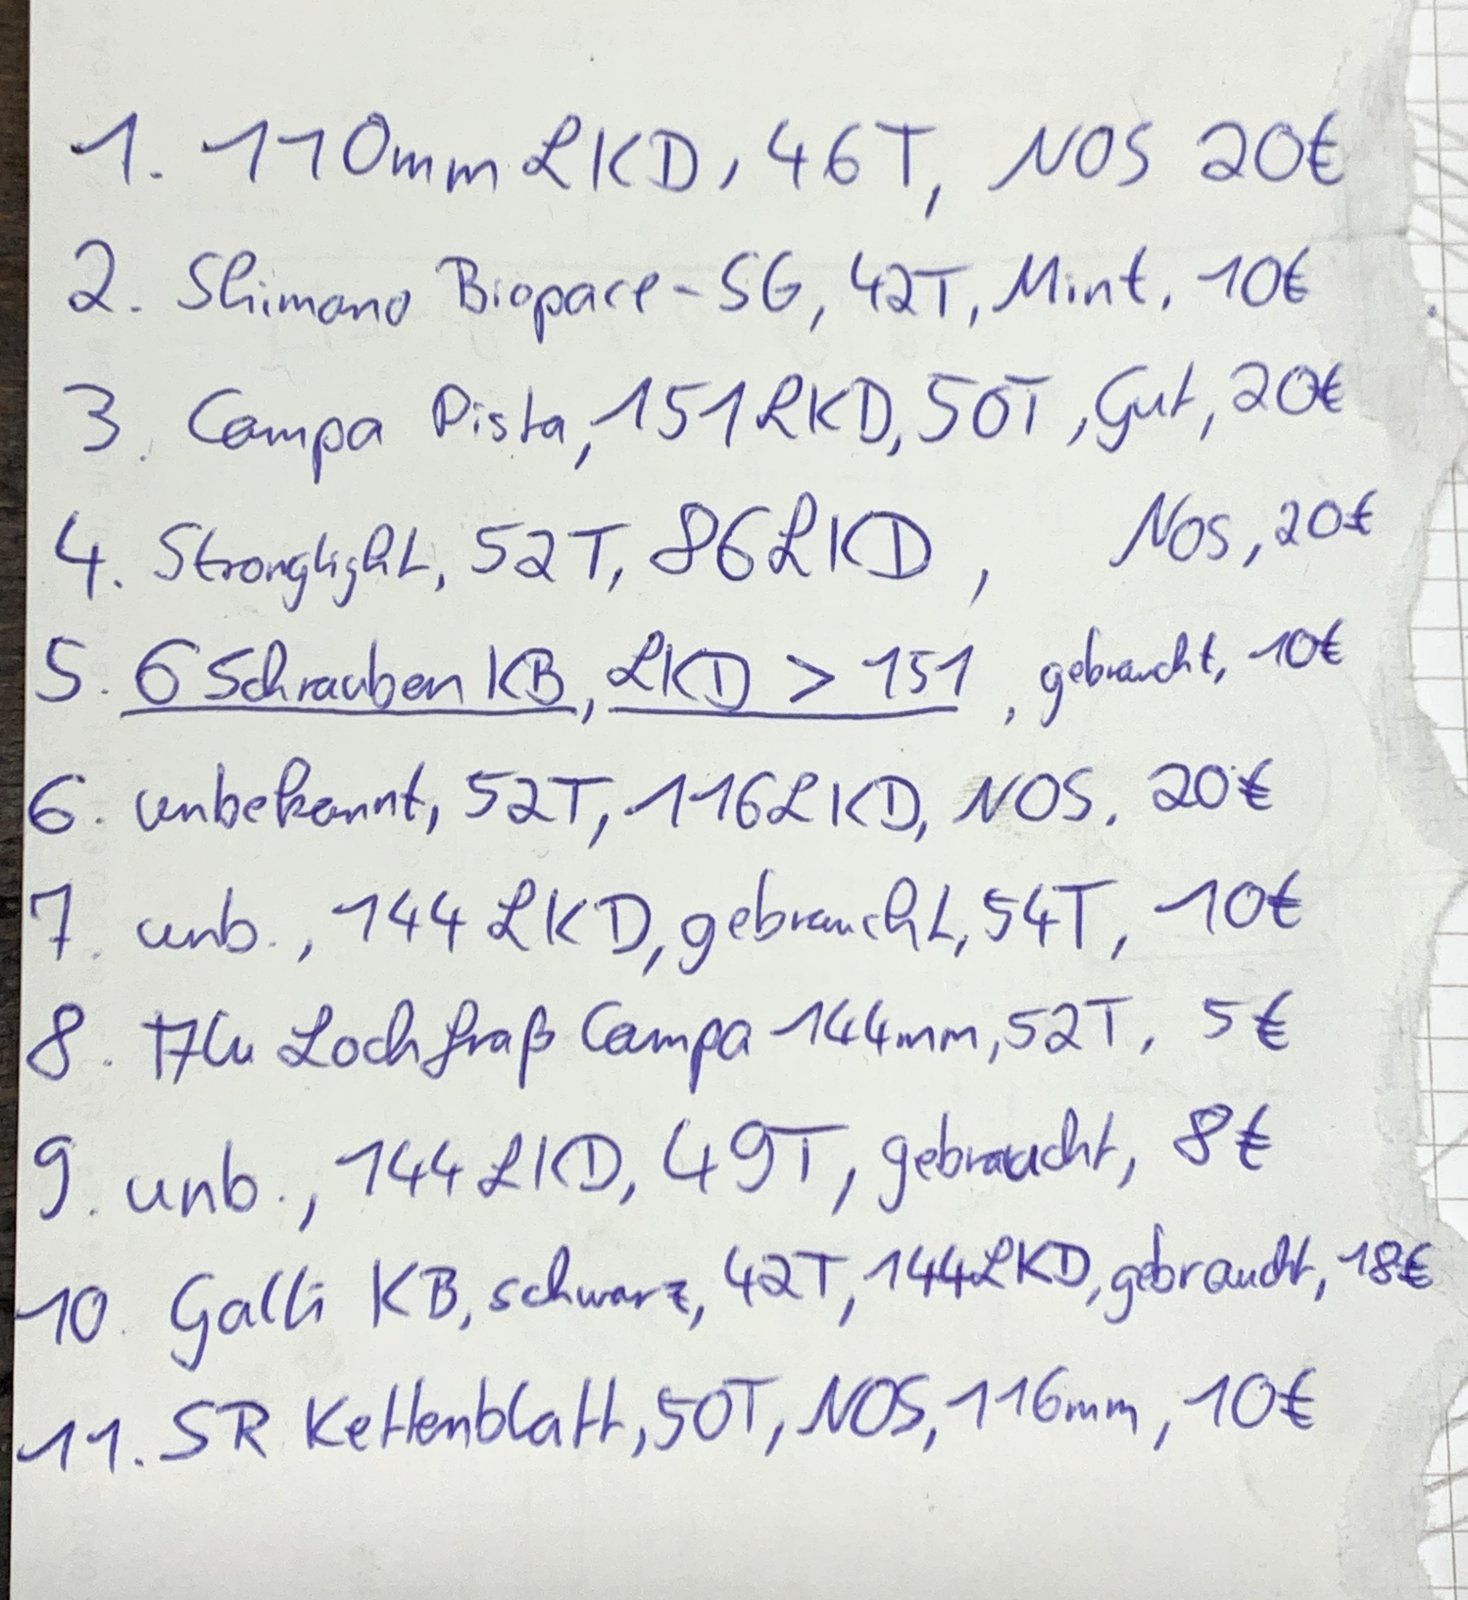 1. 110mm LKD, 46T, NOS 20€
2. Shimano Biopace-SG, 42T, Mint, 10€
3. Campa Pista, 151 LKD, 50T, Gut, 20€
4. Stronglight, 52T, 86 LKD, NOS, 20€
5. 6 Schrauben KB, LKD > 151, gebraucht, 10€
6. unbekannt, 52T, 116 LKD, NOS, 20€
7. unb., 144 LKD, gebraucht, 54T, 10€
8. Lochfraß Campa 144mm, 52T, 5€
9. unb., 144 LKD, 49T, gebraucht, 8€
10. Galli KB, schwarz, 42T, 144 LKD, gebraucht, 18€
11. SR Kettenblatt, 50T, NOS, 116mm, 10€